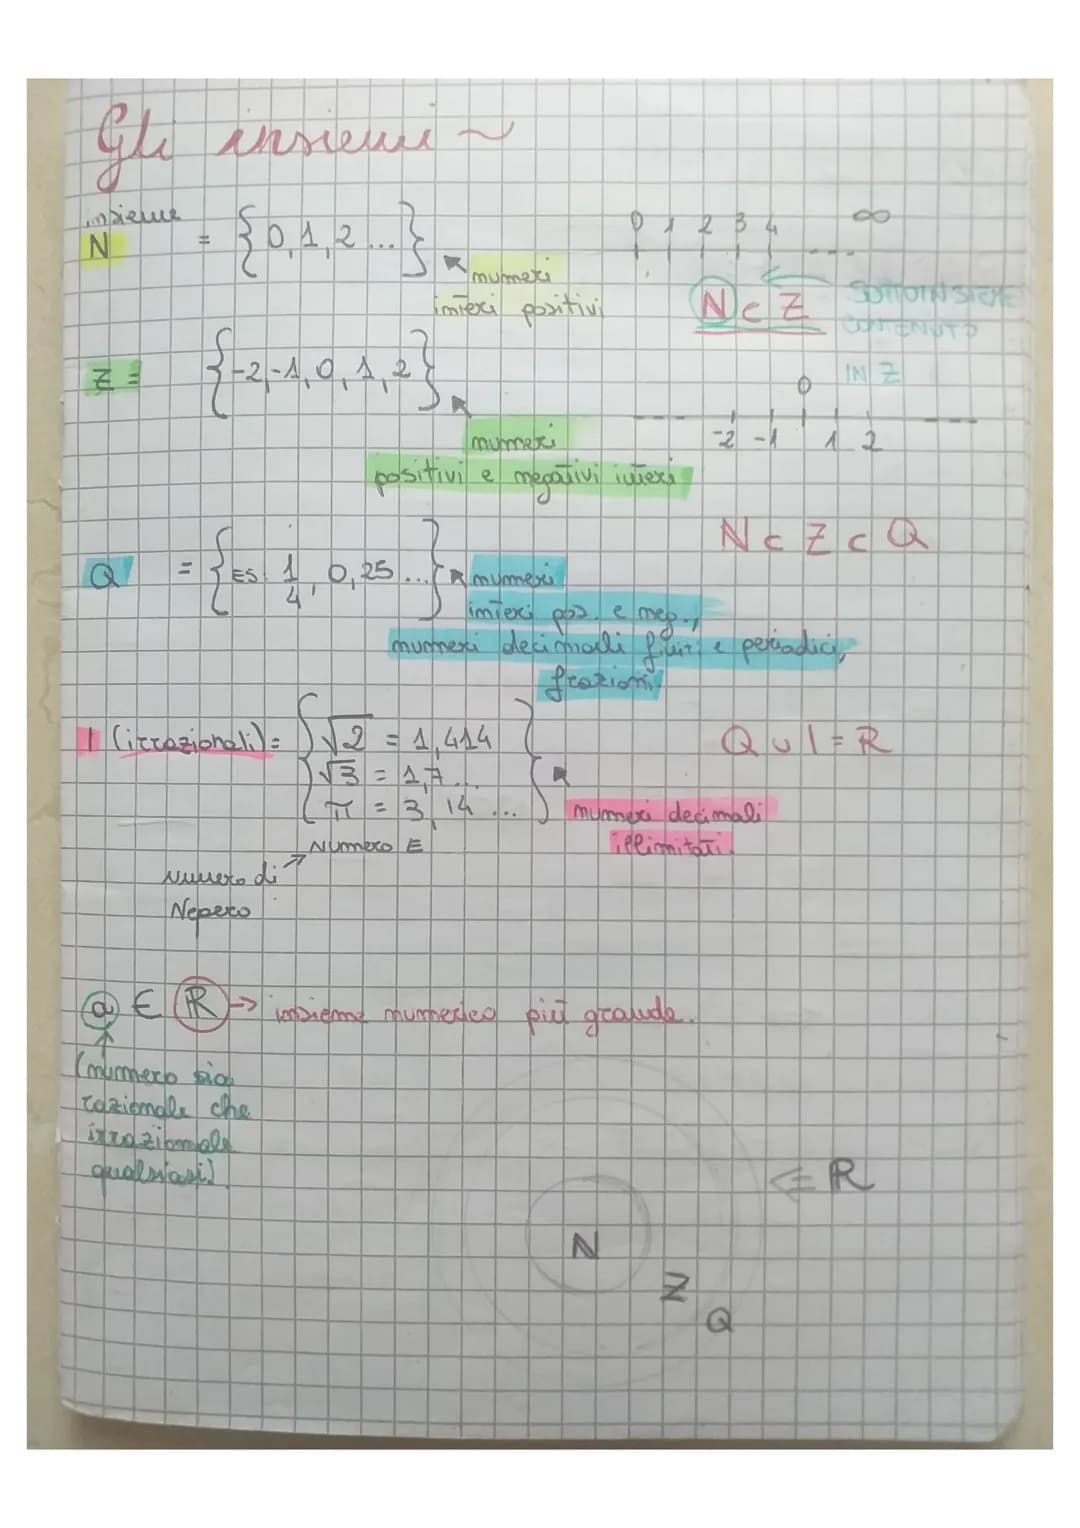 Gli insiemi ~
insieme
N = {0,1,2...}
numeri
interi positivi
0 1 2 3 4 ∞
N ⊂ Z
SOTTOINSIEME
CONTENUTO
IN Z
Z = {-2,-1,0,1,2}
numeri
positivi e negativi interi
0
-2 -1 1 2
N ⊂ Z ⊂ Q
Q = {ES: 1/4, 0,25...}
numeri
interi pos. e neg.,
numeri decimali finiti e periodici,
frazioni
I (irrazionali) = {√2 = 1,414
√3 = 1,7...
π = 3,14 ...}
Numero E
Numero di
Nepero
numeri decimali
illimitati.
Q ∪ I = R
a ∈ R → insieme numerico più grande.
(numero sia
razionale che
irrazionale
qualsiasi).
⇐ R
N
Z
Q